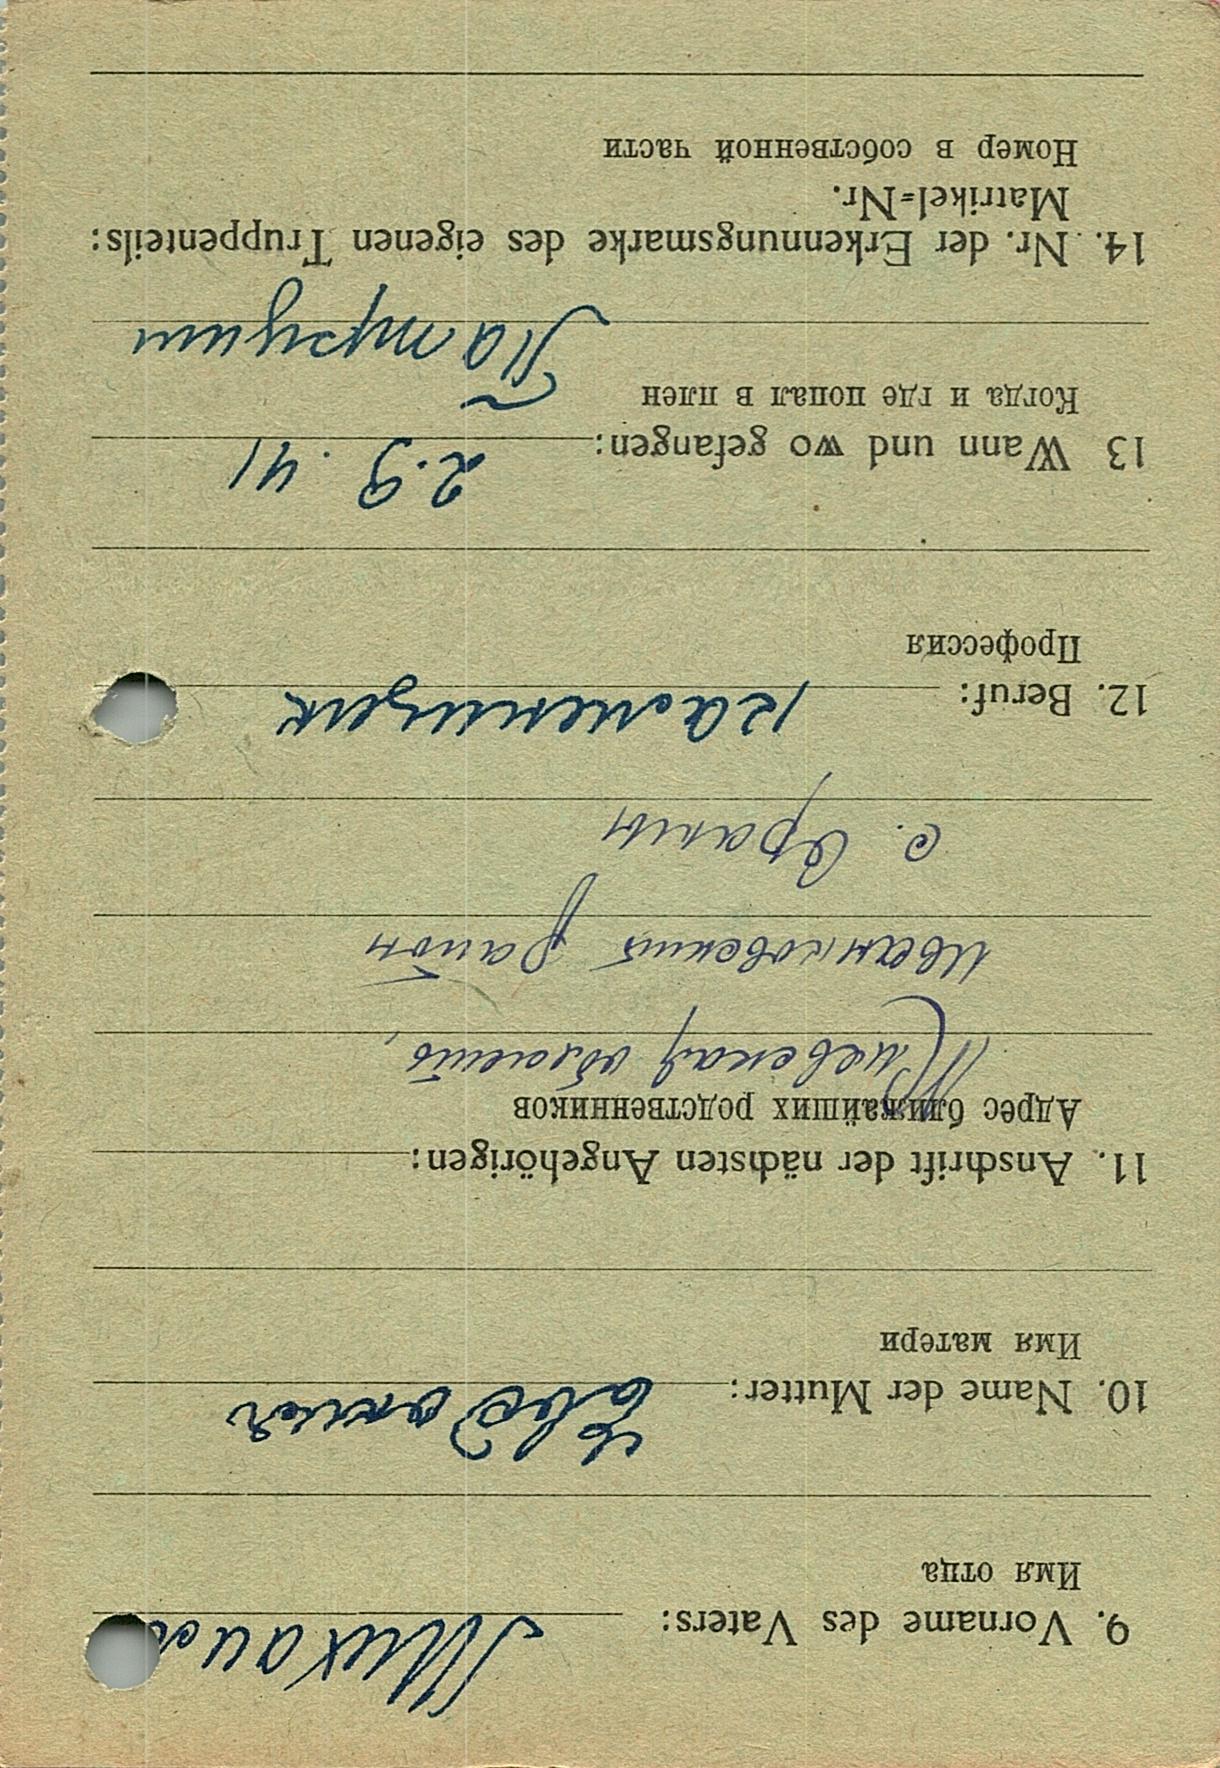 9. Vorname des Vaters: Михаил
Имя отца
10. Name der Mutter: Евдокия
Имя матери
11. Anschrift der nächsten Angehörigen:
Адрес ближайших родственников
Киевская область,
иванковский район
с. Ораны
12. Beruf: каменщик
Профессия
13 Wann und wo gefangen: 2.9.41
Когда и где попал в плен
14. Nr. der Erkennungsmarke des eigenen Truppenteils:
Matrikel=Nr.
Номер в собственной части